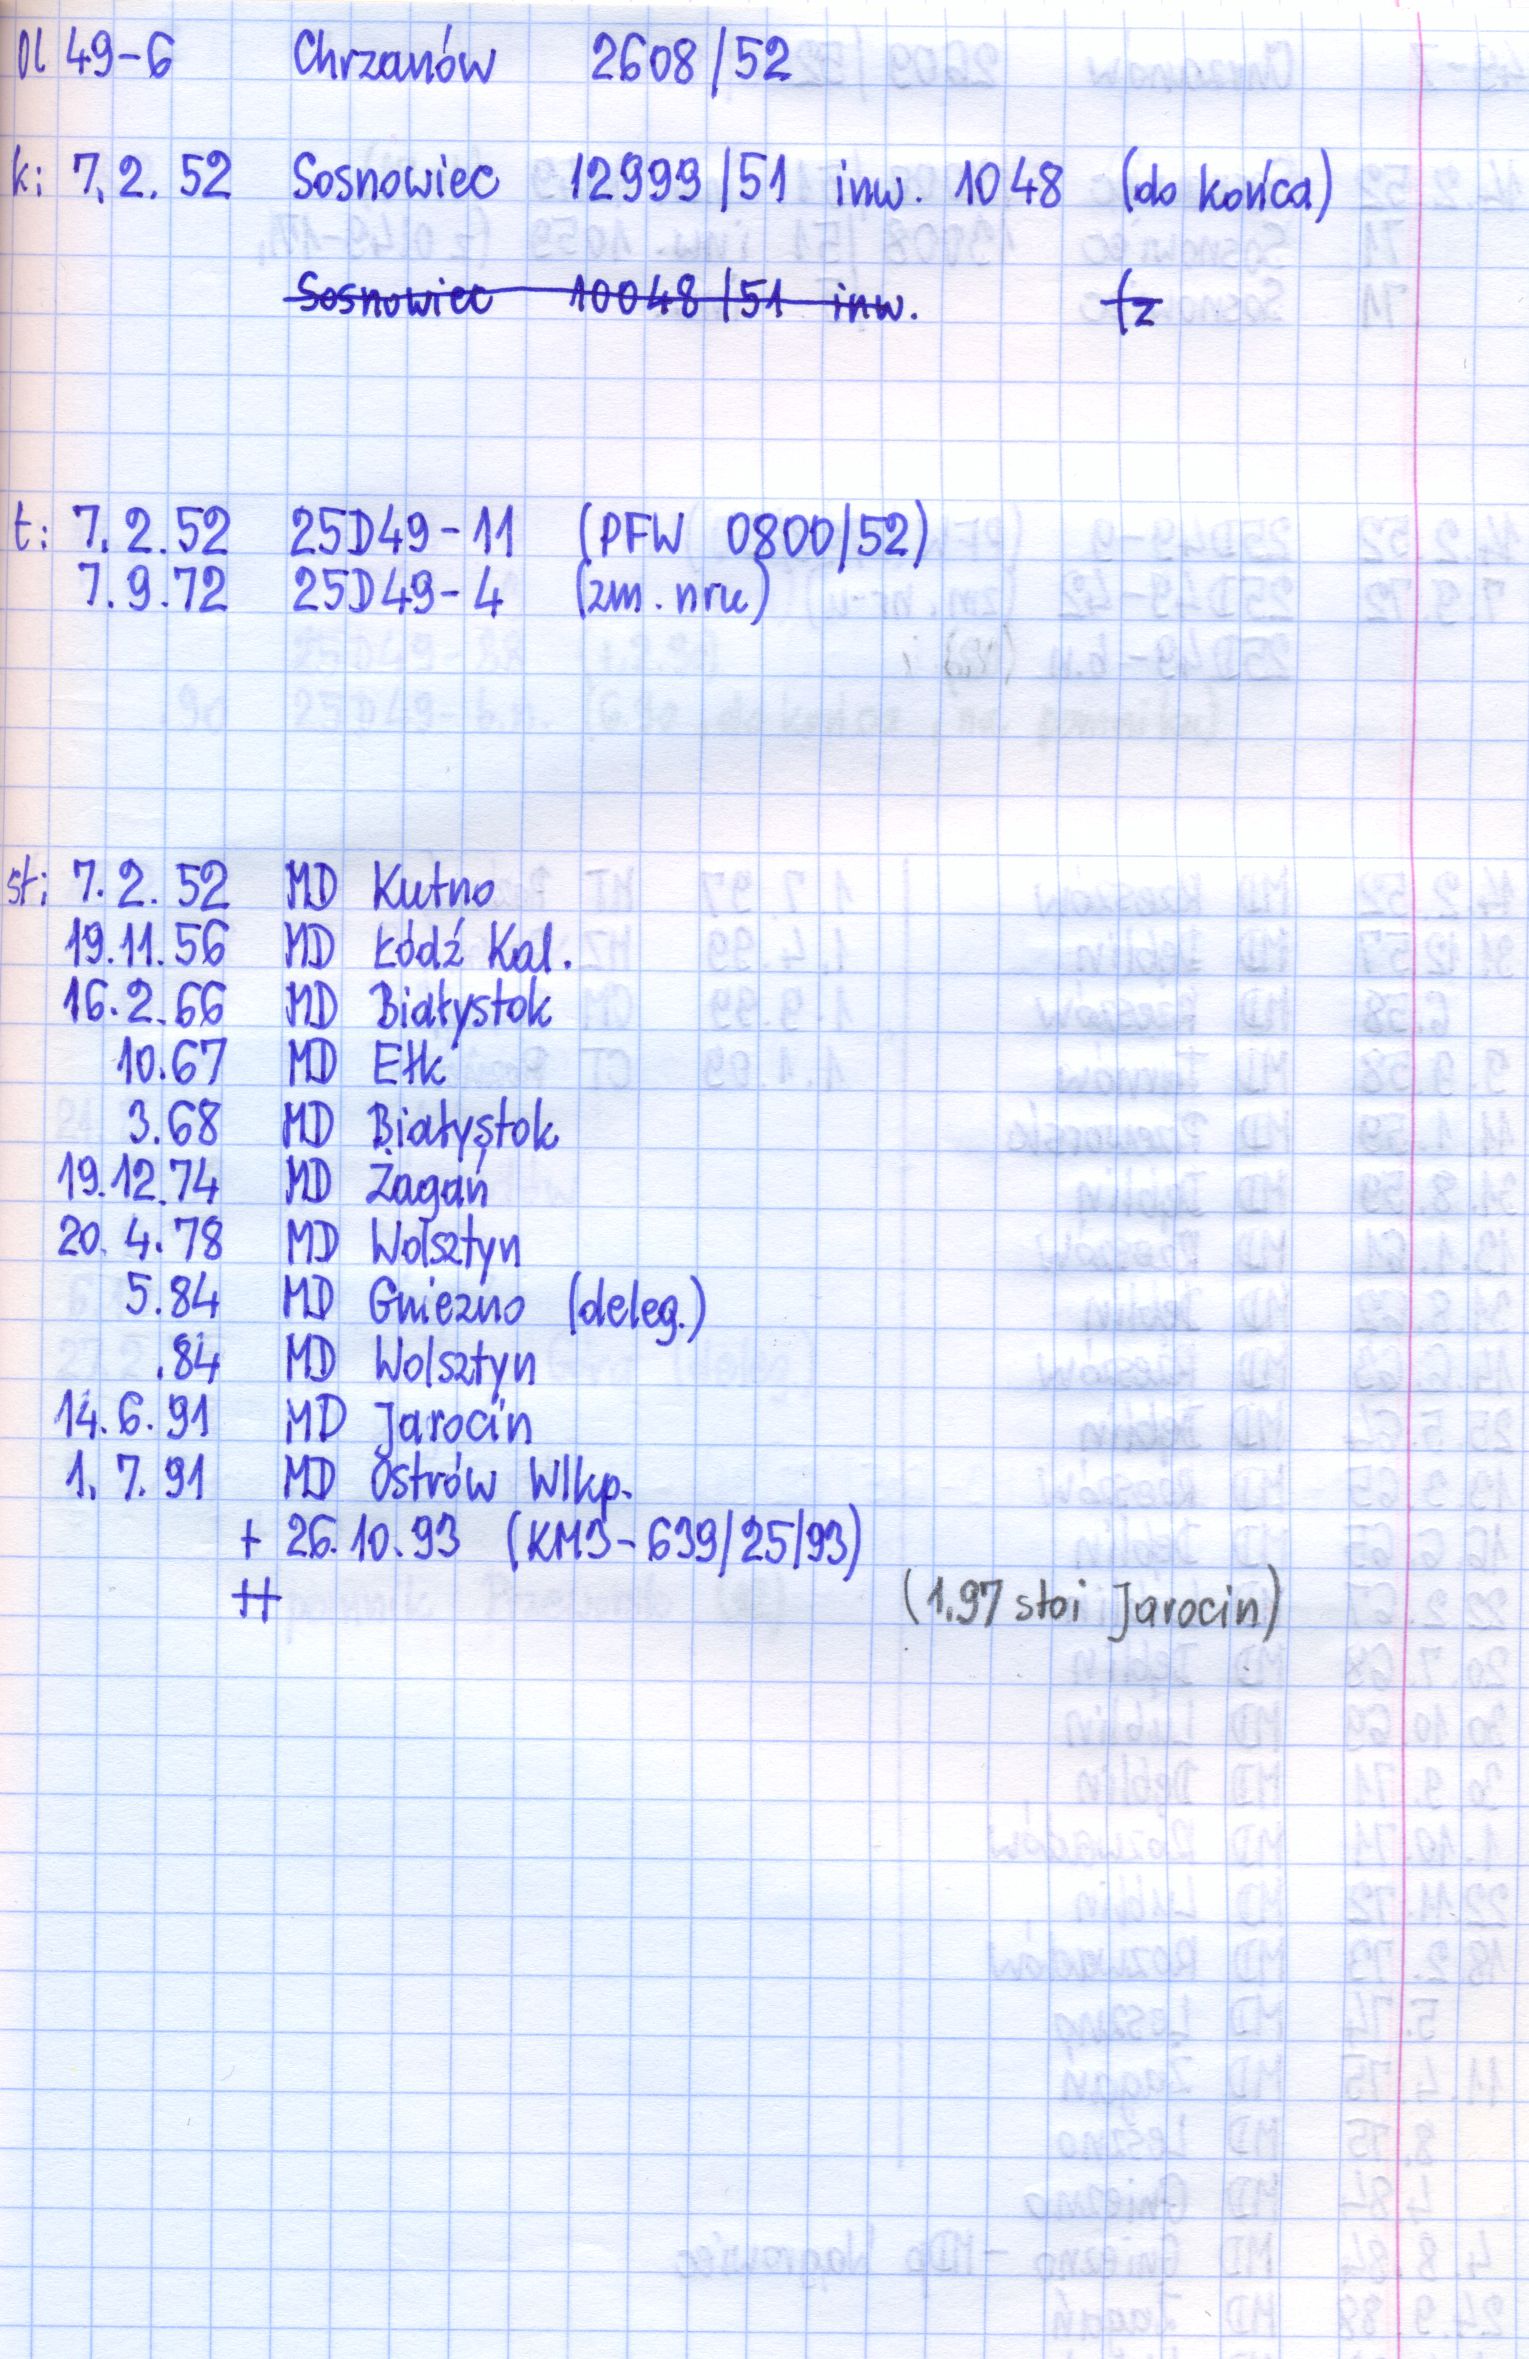 Ol 49-6 Chrzanów 2608/52
k: 7.2.52 Sosnowiec 12999/51 inw. 1048 (do końca)
Sosnowiec 10048/51 inw. (z
t: 7.2.52 25D49-11 (PFW 0800/52)
7.9.72 25D49-4 (zm. nru)
st: 7.2.52 MD Kutno
19.11.56 MD Łódź Kal.
16.2.66 MD Białystok
10.67 MD Ełk
3.68 MD Białystok
19.12.74 MD Żagań
20.4.78 MD Wolsztyn
5.84 MD Gniezno (deleg.)
.84 MD Wolsztyn
14.6.91 MD Jarocin
1.7.91 MD Ostrów Wlkp.
+ 26.10.93 (KM3-639/25/93)
++ (1.97 stoi Jarocin)